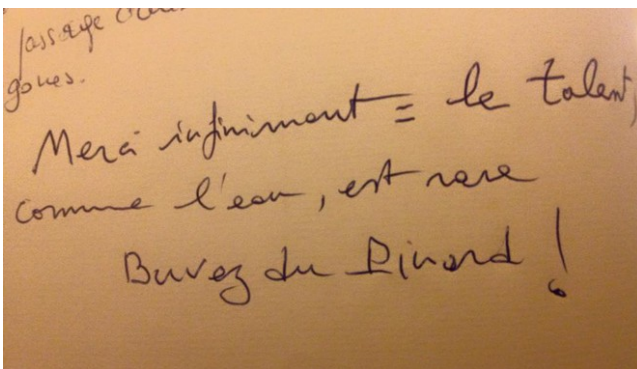 passage
gones.
Merci infiniment = le talent,
comme l'eau, est rare
Buvez du Pinard !